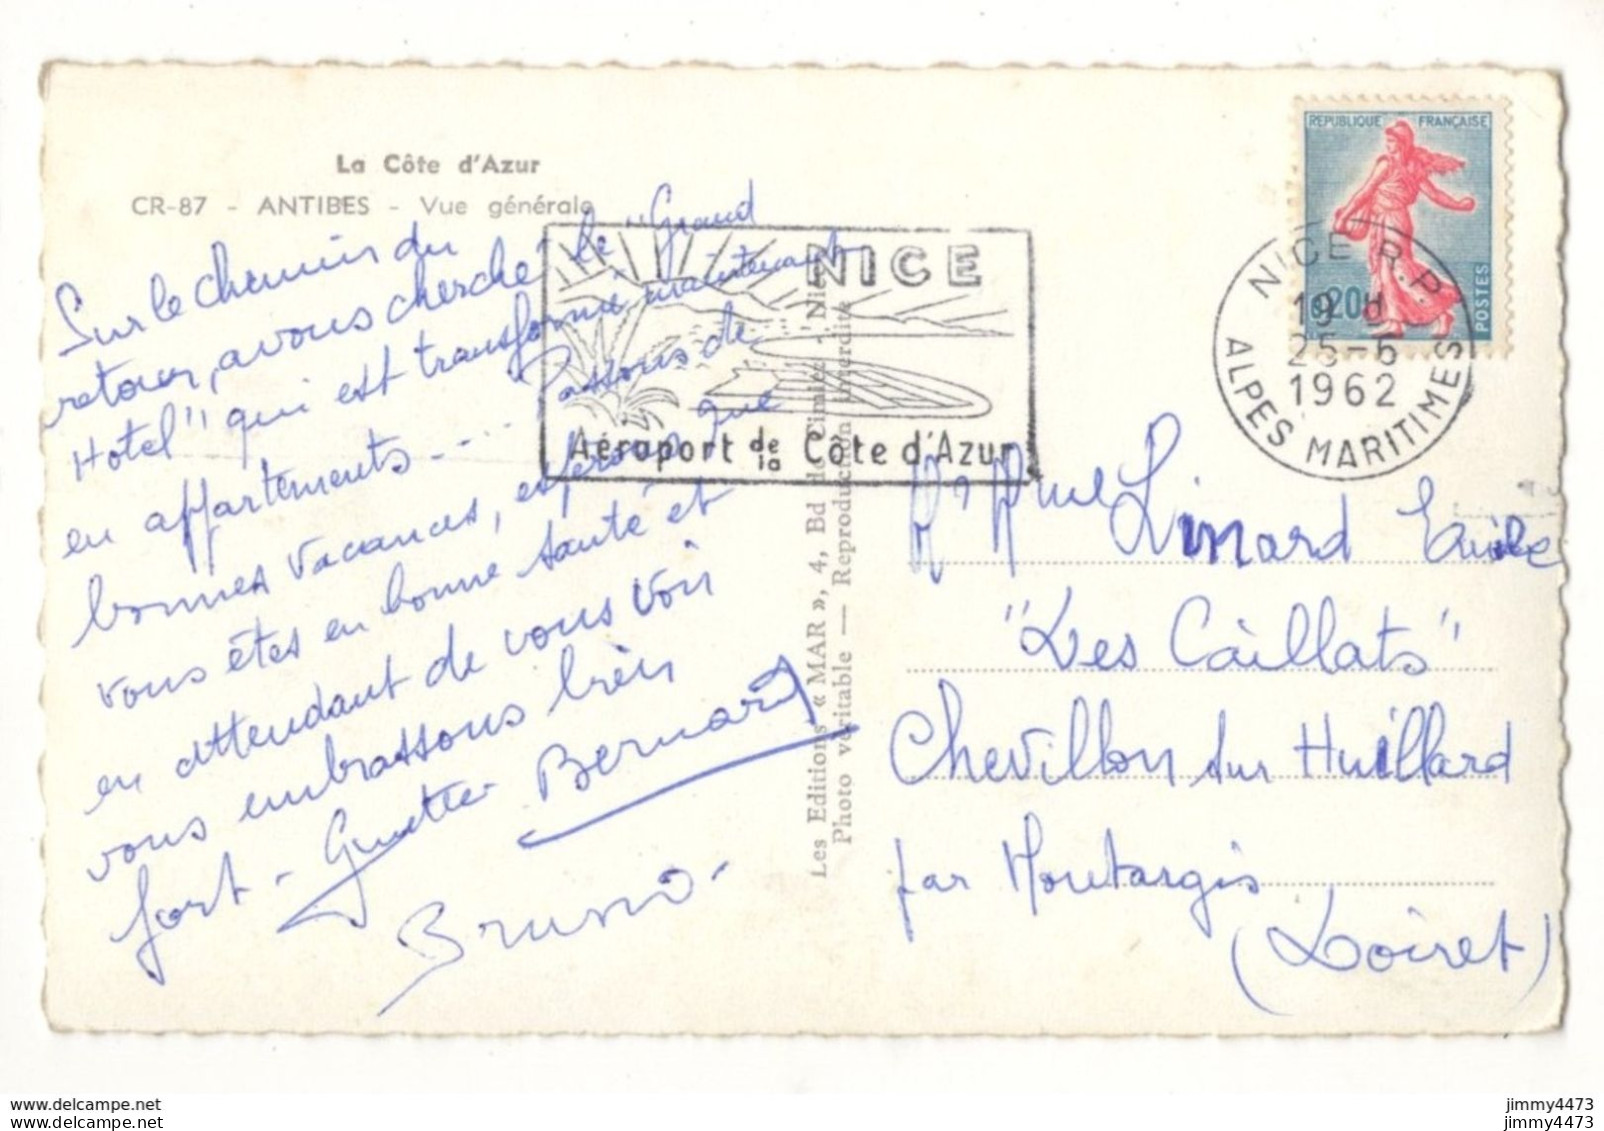 La Côte d'Azur
CR-87 - ANTIBES - Vue générale
Sur le chemin du
retour, avons cherché le "Grand
Hotel" qui est transformé maintenant
en appartements.... Passons de
bonnes vacances, espérons que
vous êtes en bonne santé et
en attendant de vous voir
vous embrassons bien
fort - Guette Bernard
Bruno -
NICE
Aéroport de la Côte d'Azur
Les Editions « MAR », 4, Bd de Cimiez - Nice
Photo véritable — Reproduction interdite
REPUBLIQUE FRANÇAISE
0,20
POSTES
NICE R.P.
19H
25-5
1962
ALPES MARITIMES
Mr Mme Linard Emile
"Les Caillats"
Chevillon sur Huillard
par Montargis
(Loiret)
www.delcampe.net
www.delcampe.net
jimmy4473
jimmy4473